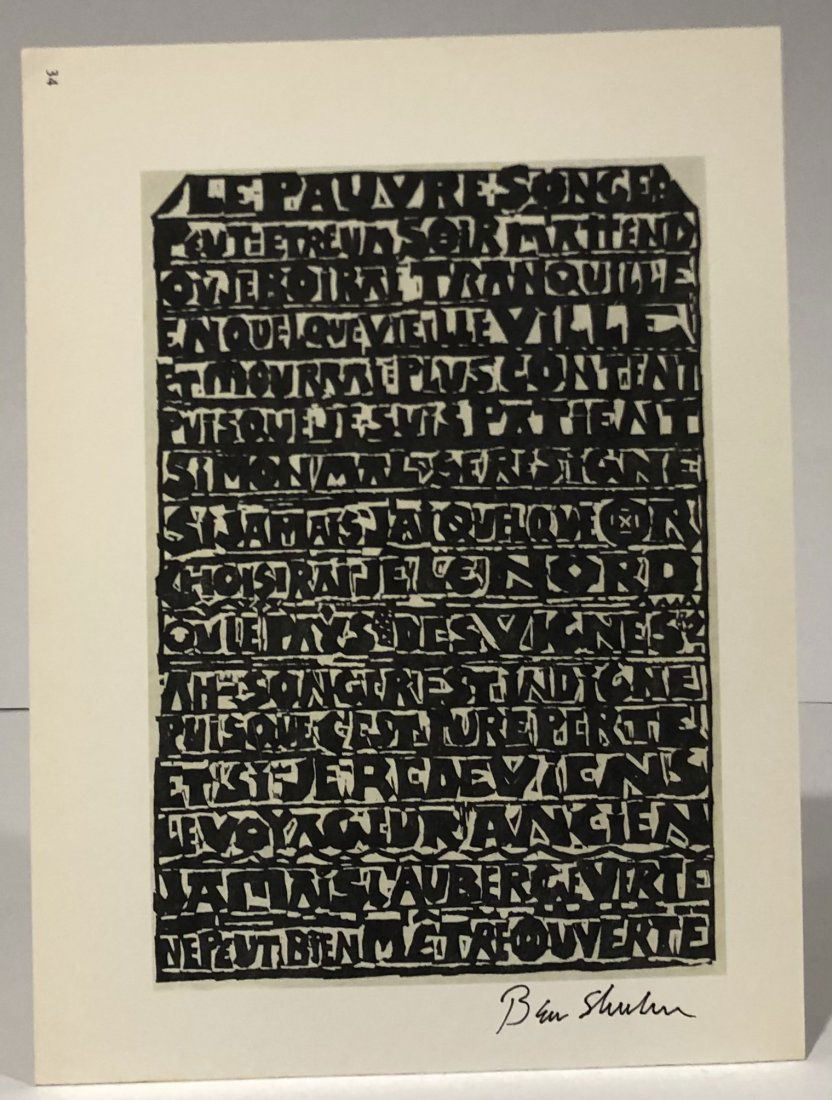 34
LE PAUVRE SONGE:
PEUT-ETRE UN SOIR MATTEND
OU JE BOIRAI TRANQUILLE
EN QUELQUE VIEILLE VILLE
ET MOURRAI PLUS CONTENT
PUISQUE JE SUIS PATIENT
SI MON MAL SE RESIGNE
SI JAMAIS J'AI QUELQUE OR
CHOISIRAI JE LE NORD
OU LE PAYS DES VIGNES?
AH-SONGER EST INDIGNE
PUISQUE C'EST PURE PERTE
ET SI JE REDEVIENS
LE VOYAGEUR ANCIEN
JAMAIS L'AUBERGE VERTE
NE PEUT BIEN M'ETRE OUVERTE
Ben Shahn